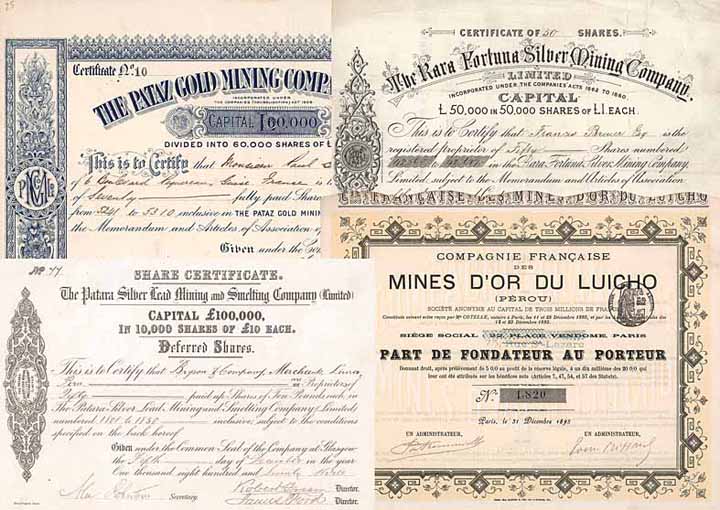 25
Certificate No. 10
THE PATAZ GOLD MINING COMPA
INCORPORATED UNDER
THE COMPANIES (CONSOLIDATION) ACT 1908
CAPITAL £60,000
DIVIDED INTO 60,000 SHARES OF £
This is to Certify that Monsieur Paul
of 6 Boulevard France
of Seventy fully paid Shar
from 5241 to 5310 inclusive in THE PATAZ GOLD MINING
the Memorandum and Articles of Association of
Given under the Co
CERTIFICATE OF 50 SHARES.
The Rara Fortuna Silver Mining Company,
LIMITED
INCORPORATED UNDER THE COMPANIES ACTS 1862 TO 1880.
CAPITAL
£50,000 IN 50,000 SHARES OF £1 EACH.
This is to Certify that Esq is the
registered proprietor of Fifty Shares numbered
in the Rara Fortuna Silver Mining Company,
Limited, subject to the Memorandum and Articles of Association
FRANÇAISE DES MINES D'OR DU LUICHO
No. 77
SHARE CERTIFICATE.
The Patara Silver Lead Mining and Smelting Company (Limited)
CAPITAL £100,000,
IN 10,000 SHARES OF £10 EACH.
Deferred Shares.
This is to Certify that Bryson & Company, Merchants Lima,
Peru Proprietors of
Fifty paid up Shares of Ten Pounds each in
The Patara Silver Lead Mining and Smelting Company (Limited)
numbered 1101 to 1150 inclusive, subject to the conditions
specified on the back hereof
Given under the Common Seal of the Company at Glasgow
the Fifth day of December in the year
One thousand eight hundred and
Secretary.
Director.
Director.
COMPAGNIE FRANÇAISE
DES
MINES D'OR DU LUICHO
(PÉROU)
SOCIÉTÉ ANONYME AU CAPITAL DE TROIS MILLIONS DE FRANCS
SIÈGE SOCIAL 22, PLACE VENDOME, PARIS
St Lazare
PART DE FONDATEUR AU PORTEUR
Donnant droit, après prélèvement de 5 0/0 au profit de la réserve légale, à un dix millième des 20 0/0 qui
leur ont été attribués sur les bénéfices nets (Articles 7, 47, 54, et 57 des Statuts).
No 1,820
Paris, le 31 Décembre 1895
UN ADMINISTRATEUR,
UN ADMINISTRATEUR,